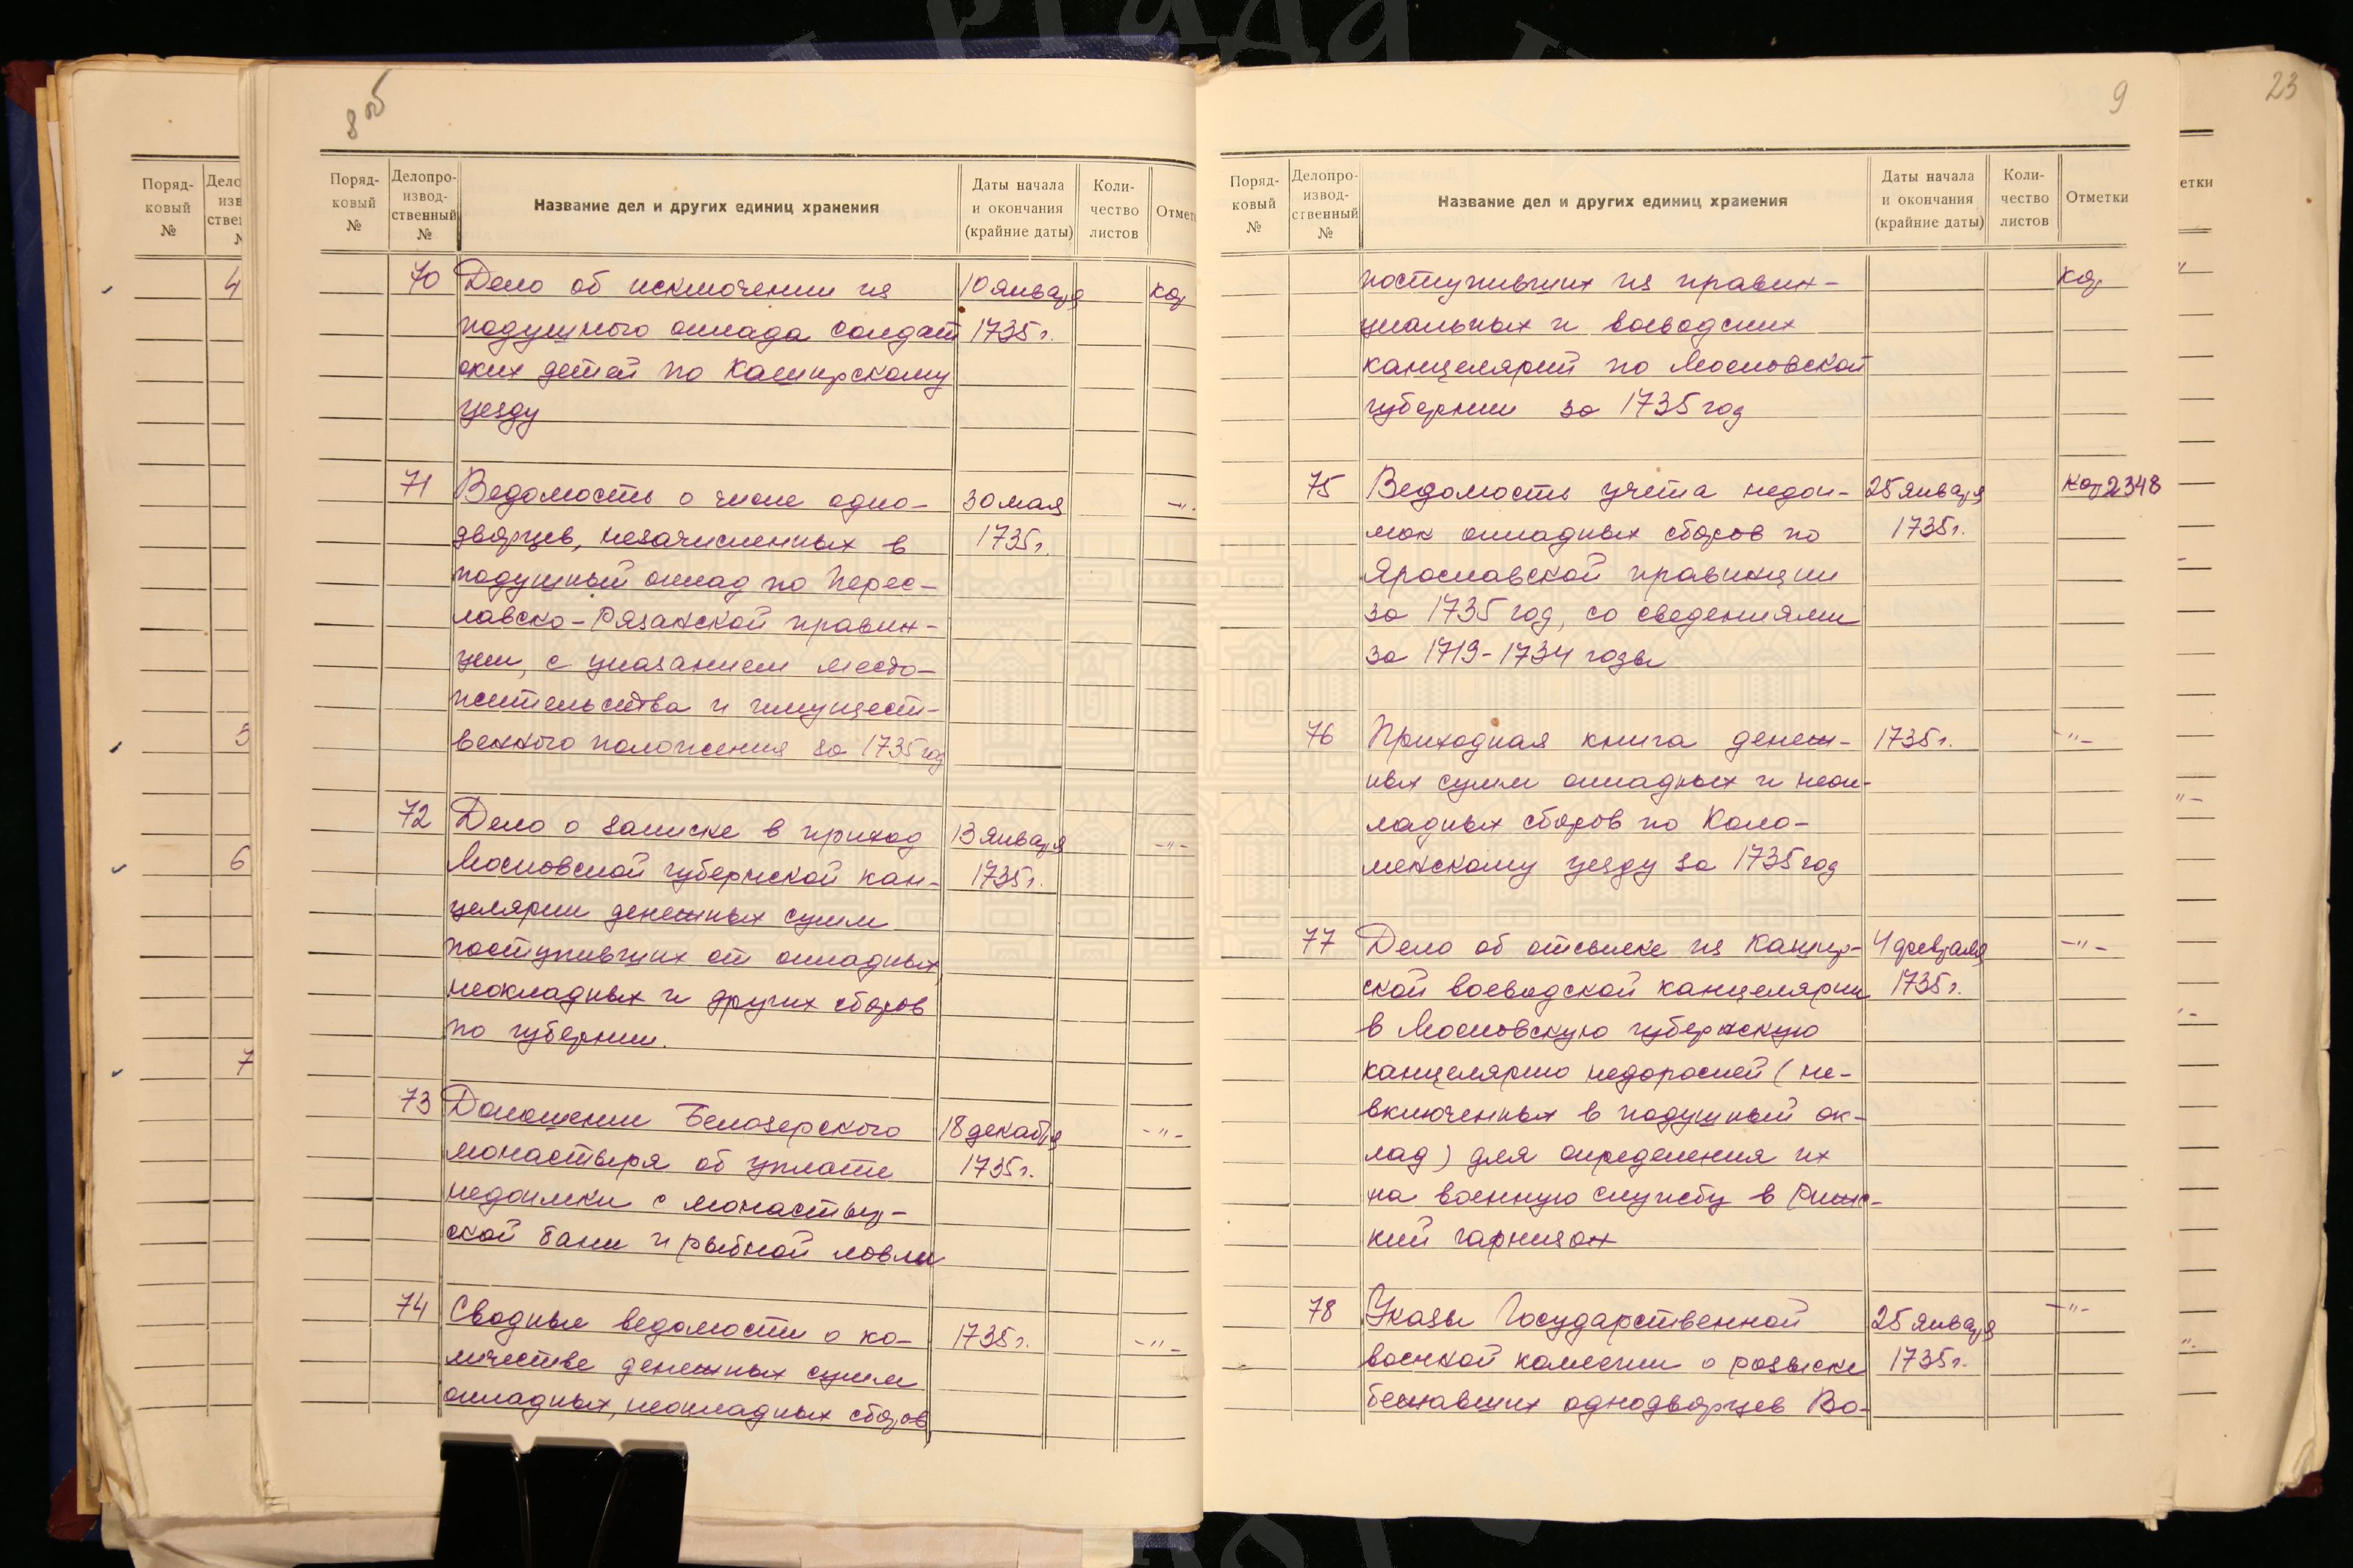 8об
Поряд-
ковый
№
Делопро-
извод-
ственный
№
Название дел и других единиц хранения
Даты начала
и окончания
(крайние даты)
Коли-
чество
листов
70 Дело об исключении из 10 января
подушного оклада солдат 1735 г.
ских детей по Каширскому
уезду
71 Ведомость о числе одно- 30 мая -"-
дворцев, незачисленных в 1735 г.
подушный оклад по Перес-
лавско-Рязанской провин-
ции, с указанием место-
жительства и имущест-
венного положения за 1735 год
72 Дело о записке в приход 13 января -"-
Московской губернской кан- 1735 г.
целярии денежных сумм
поступивших от окладных,
неокладных и других сборов
по губернии.
73 Доношении Белозерского 18 декабря -"-
монастыря об уплате 1735 г.
недоимки с монастыр-
ской бани и рыбной ловли
74 Сводные ведомости о ко- 1735 г. -"-
личестве денежных сумм
окладных, неокладных сборов,
9
Поряд-
ковый
№
Делопро-
извод-
ственный
№
Название дел и других единиц хранения
Даты начала
и окончания
(крайние даты)
Коли-
чество
листов
Отметки
поступивших из провин-
циальных и воеводских
канцелярий по Московской
губернии за 1735 год
75 Ведомость учета недои- 25 января 2348
мок окладных сборов по 1735 г.
Ярославской провинции
за 1735 год, со сведениями
за 1719-1734 годы
76 Приходная книга денеж- 1735 г. -"-
ных сумм окладных и неок-
ладных сборов по Коло-
менскому уезду за 1735 год
77 Дело об отсылке из Кашир- 4 февраля -"-
ской воеводской канцелярии 1735 г.
в Московскую губернскую
канцелярию недорослей (не-
включенных в подушный ок-
лад) для определения их
на военную службу в Рижс-
кий гарнизон
78 Указы Государственной 25 января -"-
военной коллегии о розыске 1735 г.
бежавших однодворцев Во-
23